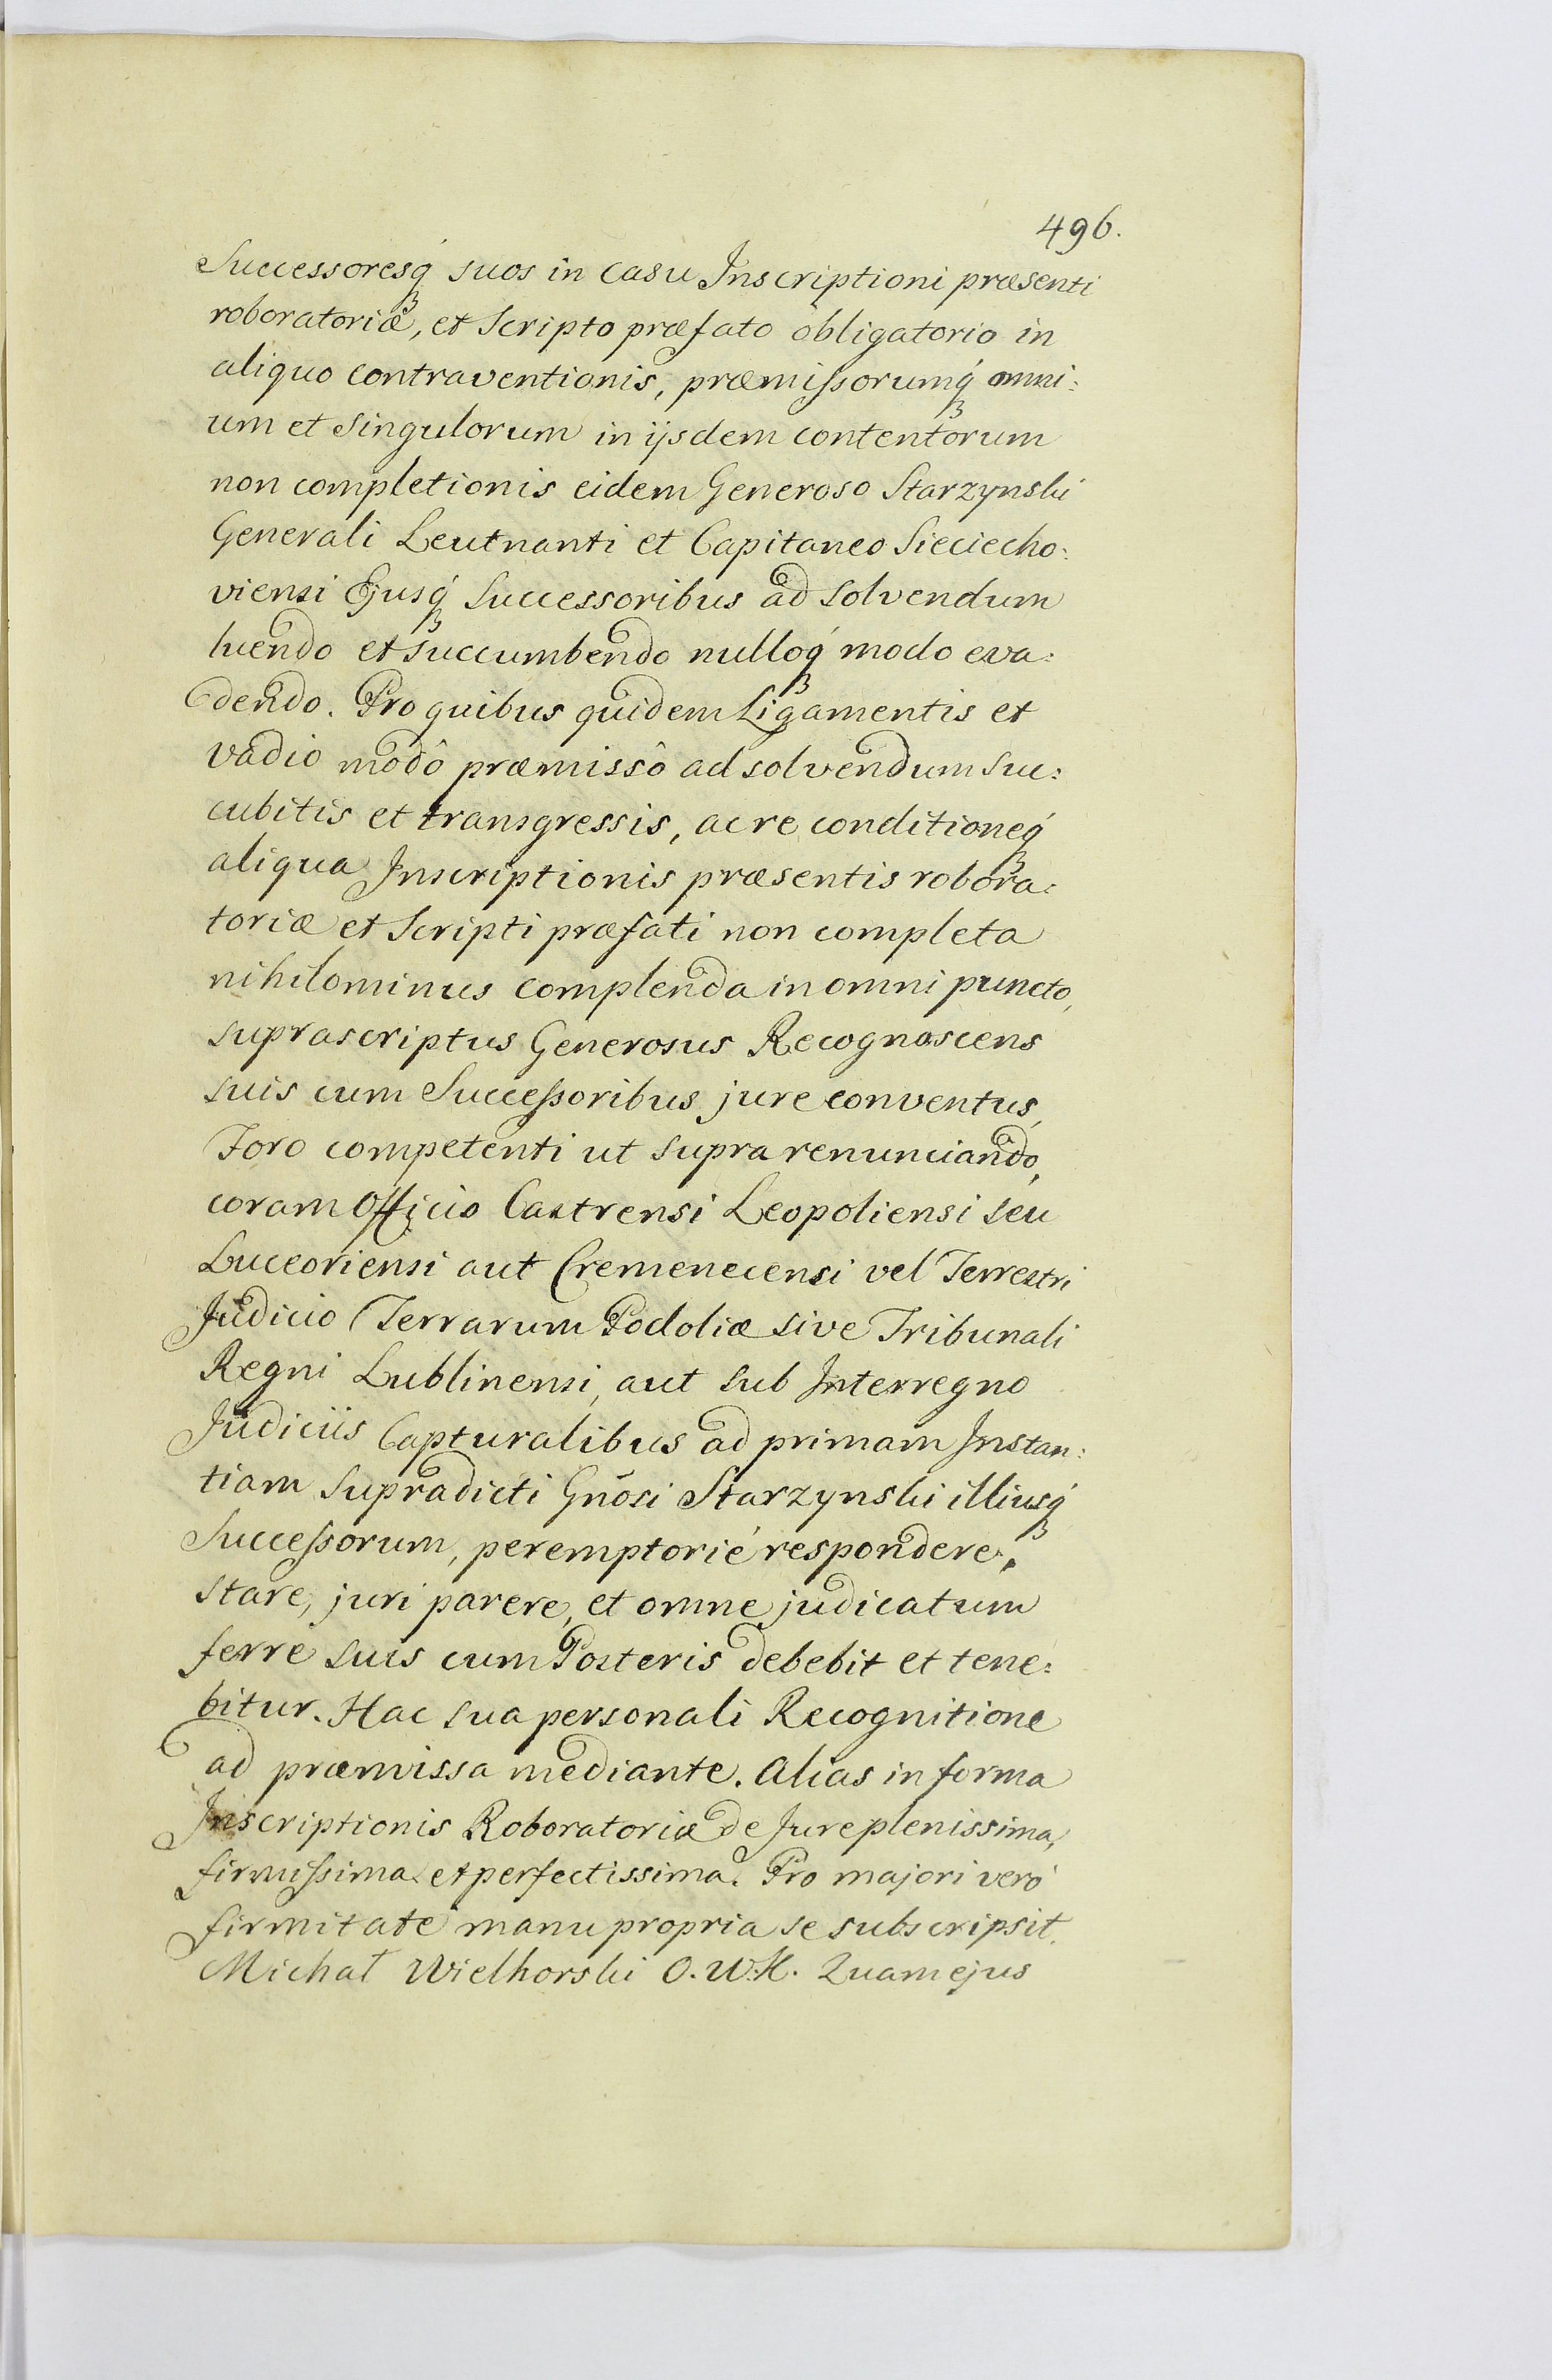 496.
Successoresq́ꝫ suos in casu Inscriptioni præsenti
roboratoriæ, et Scripto præfato obligatorio in
aliquo contraventionis, præmiſsorumq́ꝫ omni:
um et singulorum in ijsdem contentorum
non completionis eidem Generoso Starzynski
Generali Leutnanti et Capitaneo Sieciecho:
viensi Ejusq́ꝫ Successoribus ad solvendum
luendo et succumbendo nulloq́ꝫ modo eva:
dendo. Pro quibus quidem Ligamentis et
vadio modô præmissô ad solvendum suc:
cubitis et transgressis, ac re conditioneq́ꝫ
aliqua Inscriptionis præsentis robora:
toriæ et Scripti præfati non completa
nihilominus complenda in omni puncto,
suprascriptus Generosus Recognoscens
suis cum Succeſsoribus jure conventus,
Foro competenti ut supra renunciando,
coram Officio Castrensi Leopoliensi seu
Luceoriensi aut Cremenecensi vel Terrestri
Judicio Terrarum Podoliæ sive Tribunali
Regni Lublinensi, aut sub Interregno
Judiciis Capturalibus ad primam Instan:
tiam supradicti Gnõsi Starzynski illiusq́ꝫ
Succeſsorum, peremptorié respondere,
stare, juri parere, et omne judicatum
ferre suis cum Posteris debebit et tene:
bitur. Hac sua personali Recognitione
ad præmissa mediante. Alias in forma
Inscriptionis Roboratoriæ de Jure plenissima,
firmiſsima et perfectissima. Pro majori veró
firmitate manu propria se subscripsit.
Michał Wielhorski O. W. K. Quam ejus